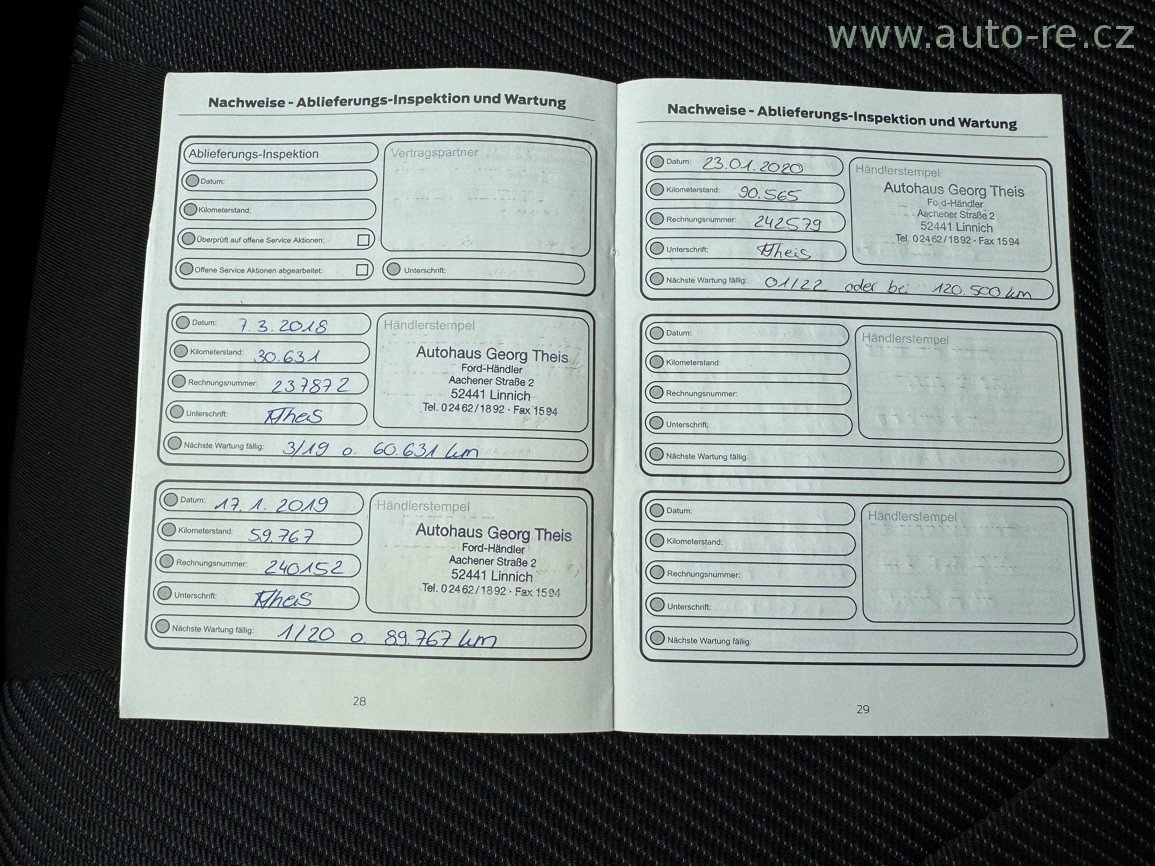 www.auto-re.cz
Nachweise - Ablieferungs-Inspektion und Wartung
Ablieferungs-Inspektion
Vertragspartner
Datum:
Kilometerstand:
Überprüft auf offene Service Aktionen:
Offene Service Aktionen abgearbeitet:
Unterschrift:
Datum: 7.3.2018
Kilometerstand: 30.631
Rechnungsnummer: 237872
Unterschrift: Theis
Nächste Wartung fällig: 3/19 o. 60.631 km
Händlerstempel
Autohaus Georg Theis
Ford-Händler
Aachener Straße 2
52441 Linnich
Tel. 02462/1892 · Fax 1594
Datum: 17.1.2019
Kilometerstand: 59.767
Rechnungsnummer: 240152
Unterschrift: Theis
Nächste Wartung fällig: 1/20 o. 89.767 km
Händlerstempel
Autohaus Georg Theis
Ford-Händler
Aachener Straße 2
52441 Linnich
Tel. 02462/1892 · Fax 1594
28
Nachweise - Ablieferungs-Inspektion und Wartung
Datum: 23.01.2020
Kilometerstand: 90.565
Rechnungsnummer: 242579
Unterschrift: Theis
Nächste Wartung fällig: 01/22 oder bei 120.500 km
Händlerstempel
Autohaus Georg Theis
Ford-Händler
Aachener Straße 2
52441 Linnich
Tel. 02462/1892 · Fax 1594
Datum:
Kilometerstand:
Rechnungsnummer:
Unterschrift:
Nächste Wartung fällig:
Händlerstempel
Datum:
Kilometerstand:
Rechnungsnummer:
Unterschrift:
Nächste Wartung fällig:
Händlerstempel
29